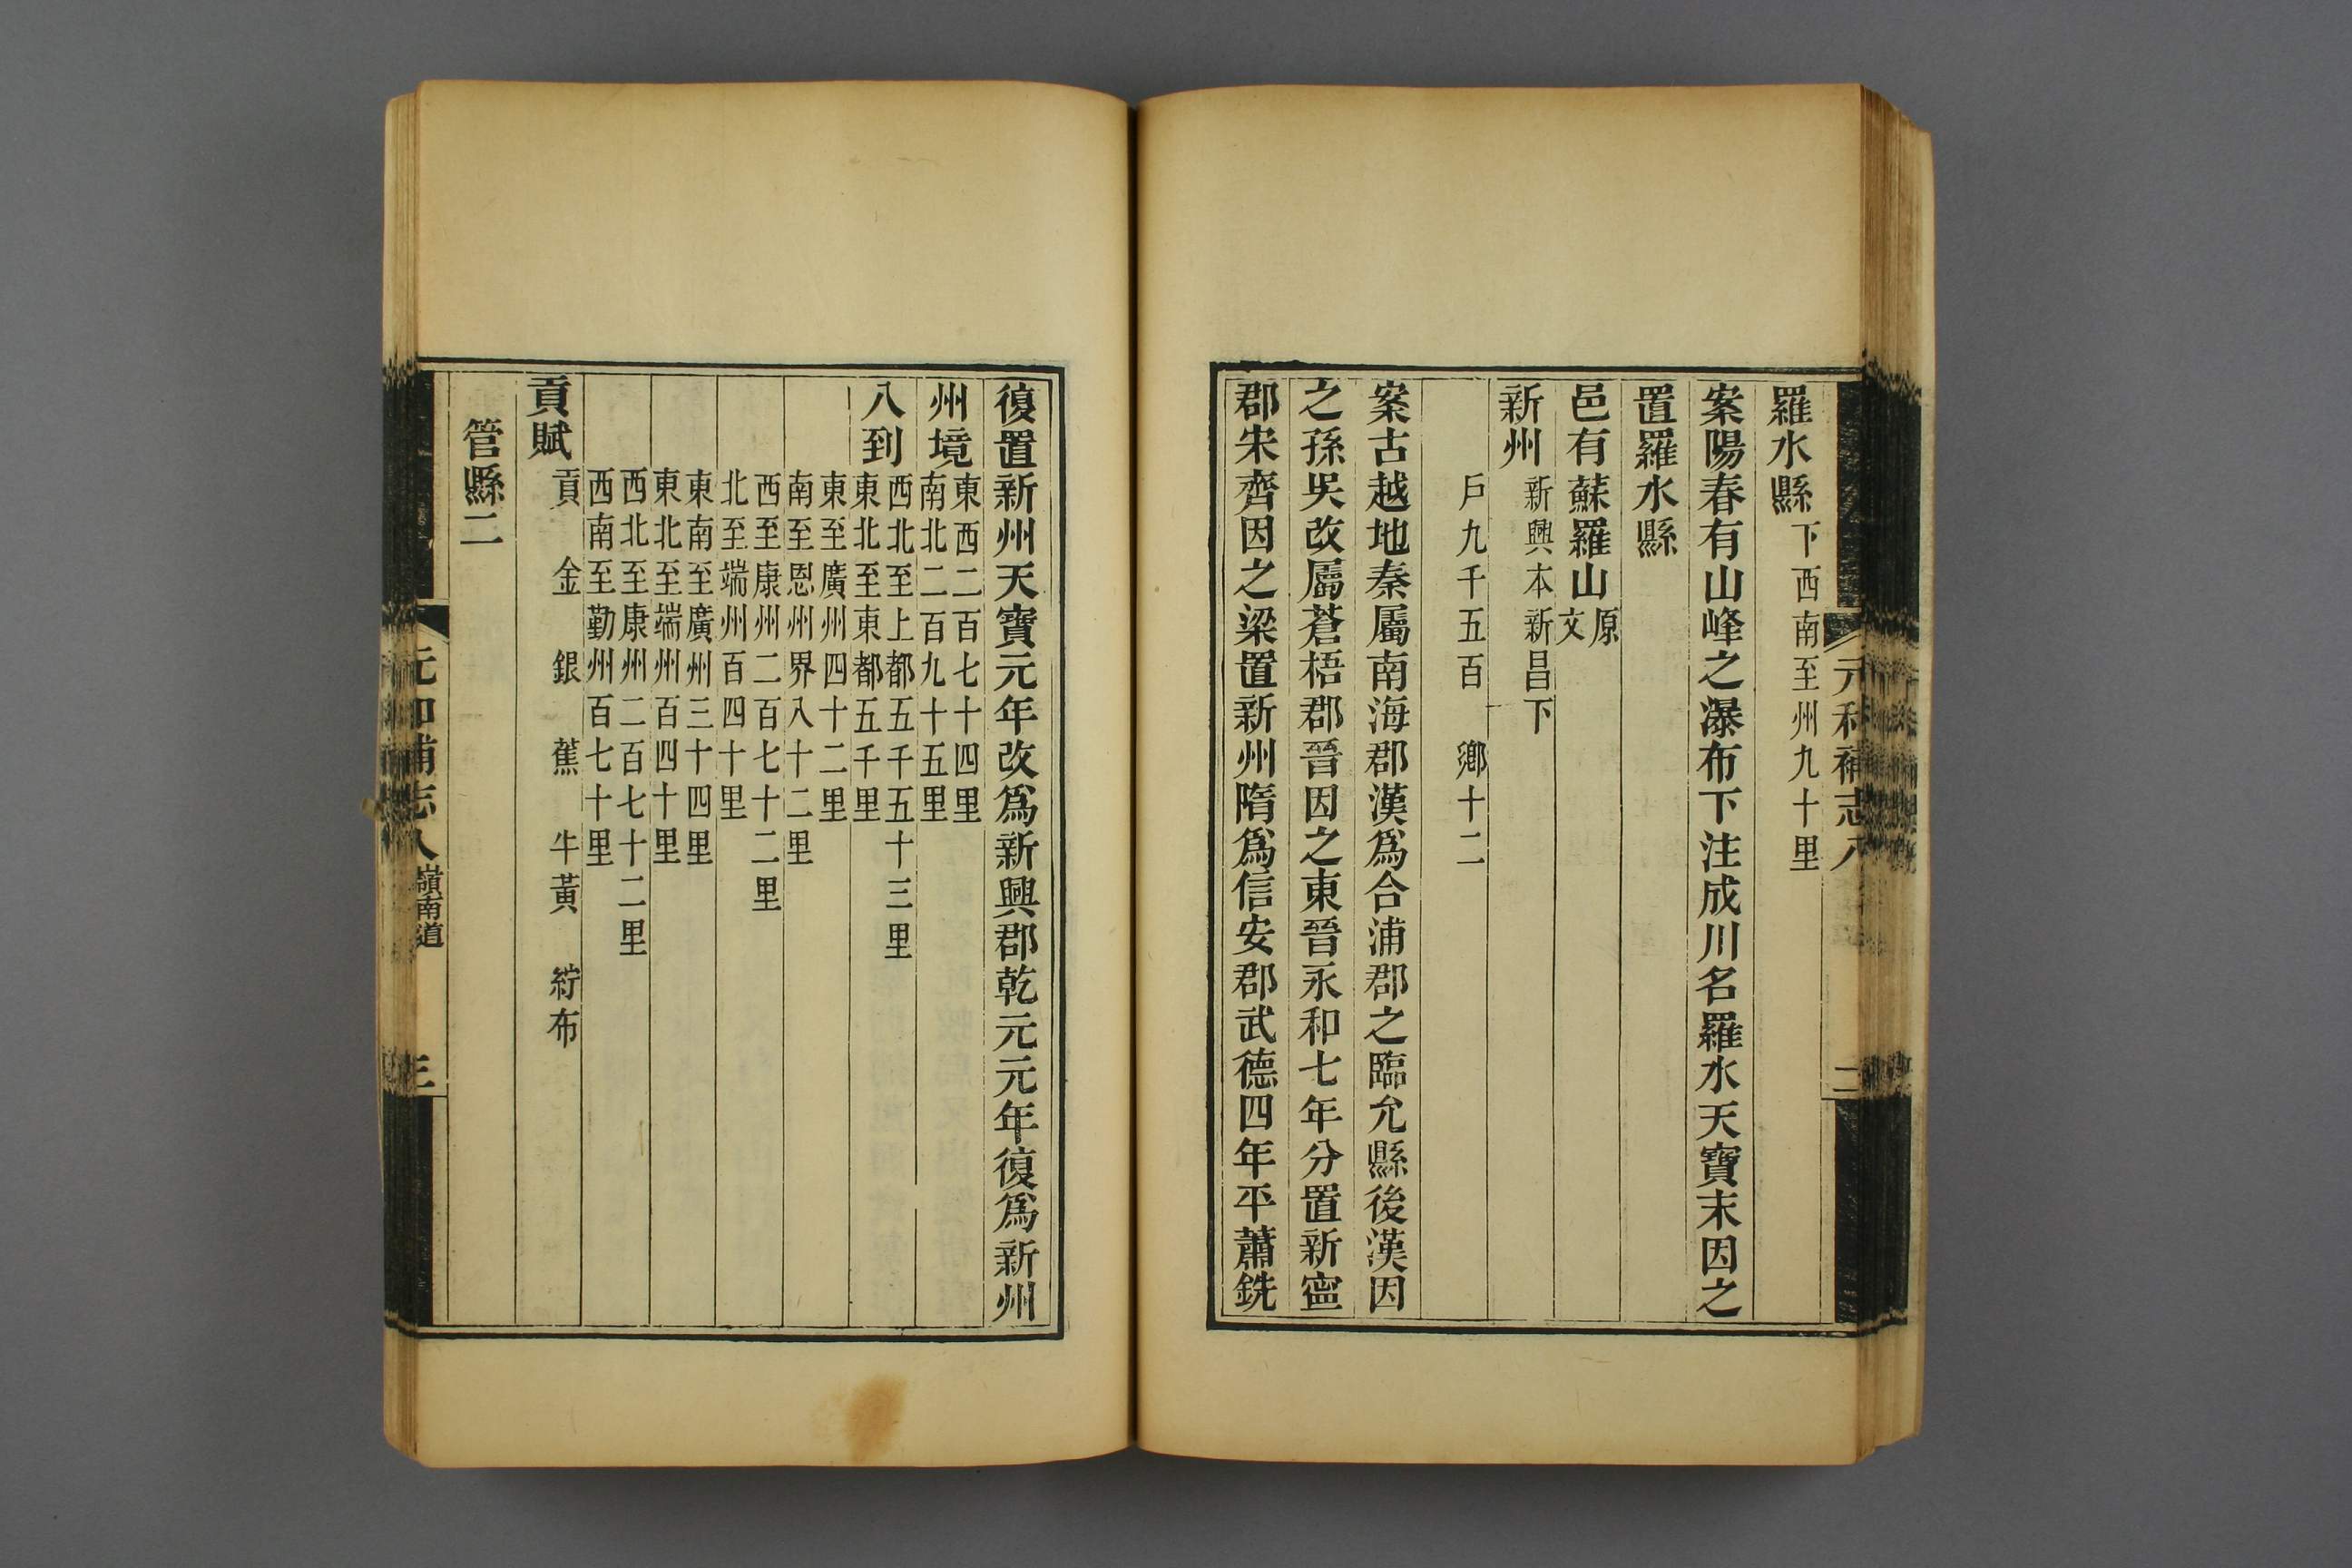 元和補志八
二
羅水縣下西南至州九十里
案陽春有山峰之瀑布下注成川名羅水天寶末因之
置羅水縣
邑有蘇羅山原文
新州新興本新昌下
戶九千五百 鄉十二
案古越地秦屬南海郡漢爲合浦郡之臨允縣後漢因
之孫吳改屬蒼梧郡晉因之東晉永和七年分置新寧
郡宋齊因之梁置新州隋爲信安郡武德四年平蕭銑
復置新州天寶元年改爲新興郡乾元元年復爲新州
州境東西二百七十四里
南北二百九十五里
八到西北至上都五千五十三里
東北至東都五千里
東至廣州四十二里
南至恩州界八十二里
西至康州二百七十二里
北至端州百四十里
東南至廣州三十四里
東北至端州百四十里
西北至康州二百七十二里
西南至勤州百七十里
貢賦貢 金 銀 蕉 牛黃 紵布
管縣二
元和補志八嶺南道
三